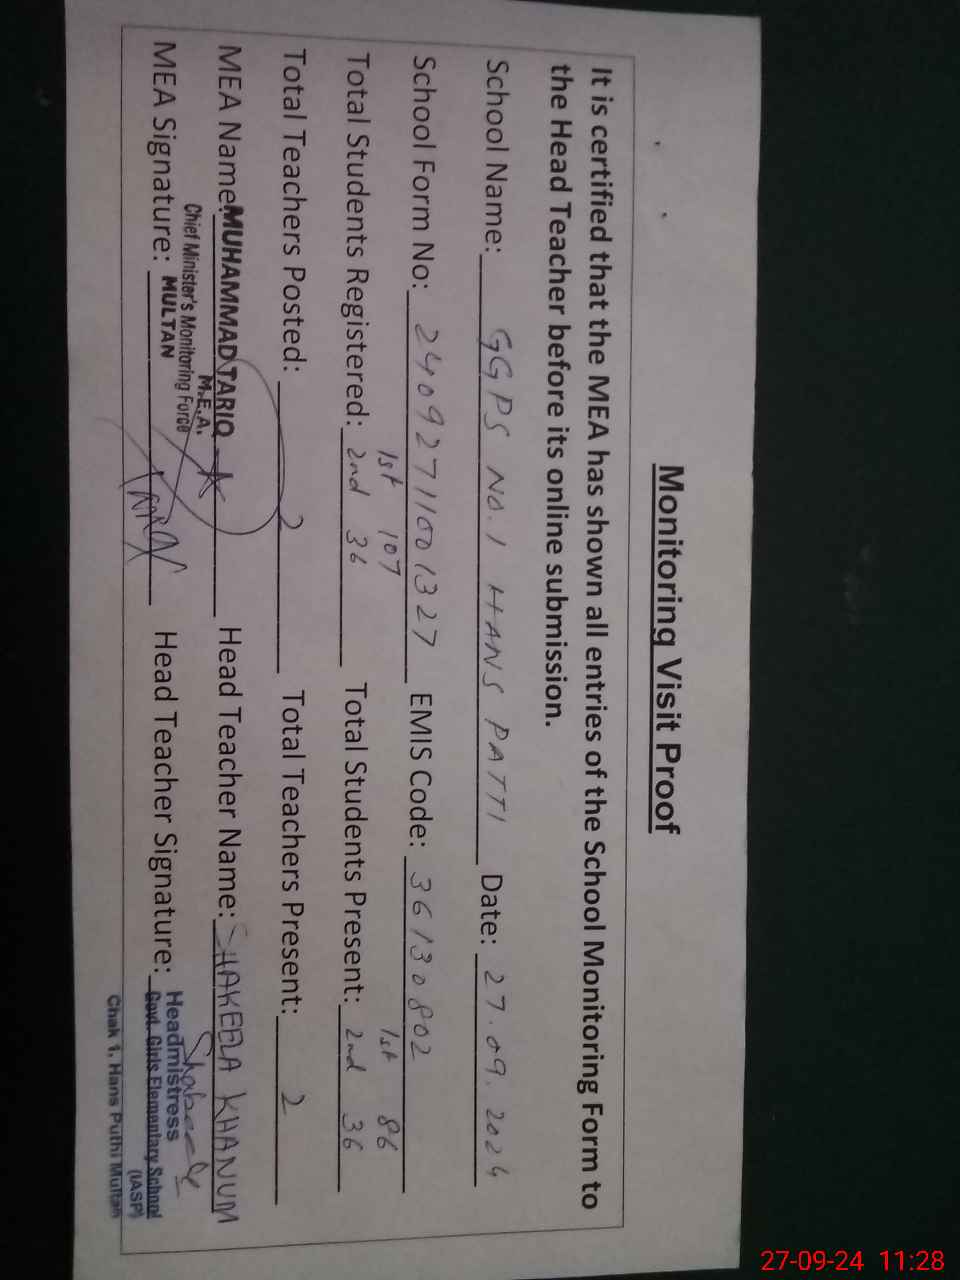 Monitoring Visit Proof
It is certified that the MEA has shown all entries of the School Monitoring Form to
the Head Teacher before its online submission.
School Name: GGPS NO.1 HANS PATTI Date: 27.09.2024
School Form No: 24092711001327 EMIS Code: 36130802
1st 107 1st 86
Total Students Registered: 2nd 36 Total Students Present: 2nd 36
Total Teachers Posted: 2 Total Teachers Present: 2
MEA Name: MUHAMMAD TARIQ Head Teacher Name: SHAKEELA KHANUM
M.E.A.
Chief Minister's Monitoring Force
MULTAN
MEA Signature: Head Teacher Signature:
Headmistress
Govt. Girls Elementary School
(IASP)
Chak 1, Hans Puthi Multan
27-09-24 11:28